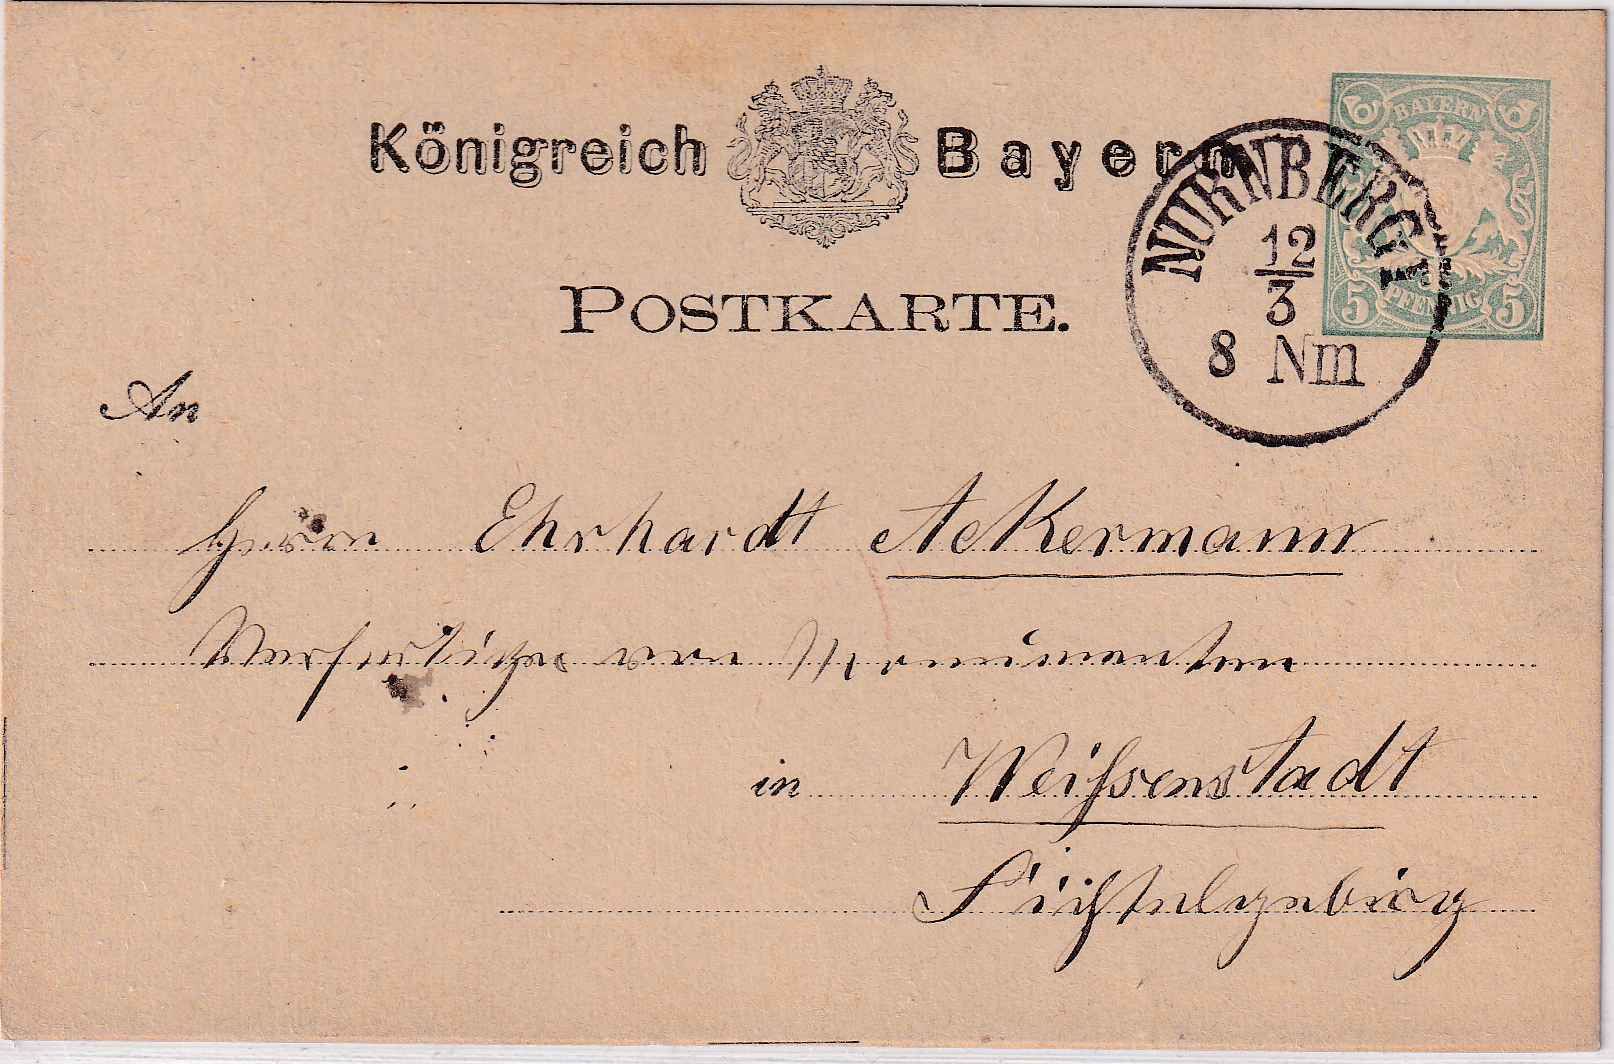 Königreich Bayern
BAYERN
5 PFENNIG 5
NÜRNBERG I
12
3
8 Nm
POSTKARTE.
An
Herrn Ehrhardt Ackermann
Verfertiger von Monumenten
in Weißenstadt
Fichtelgebirg